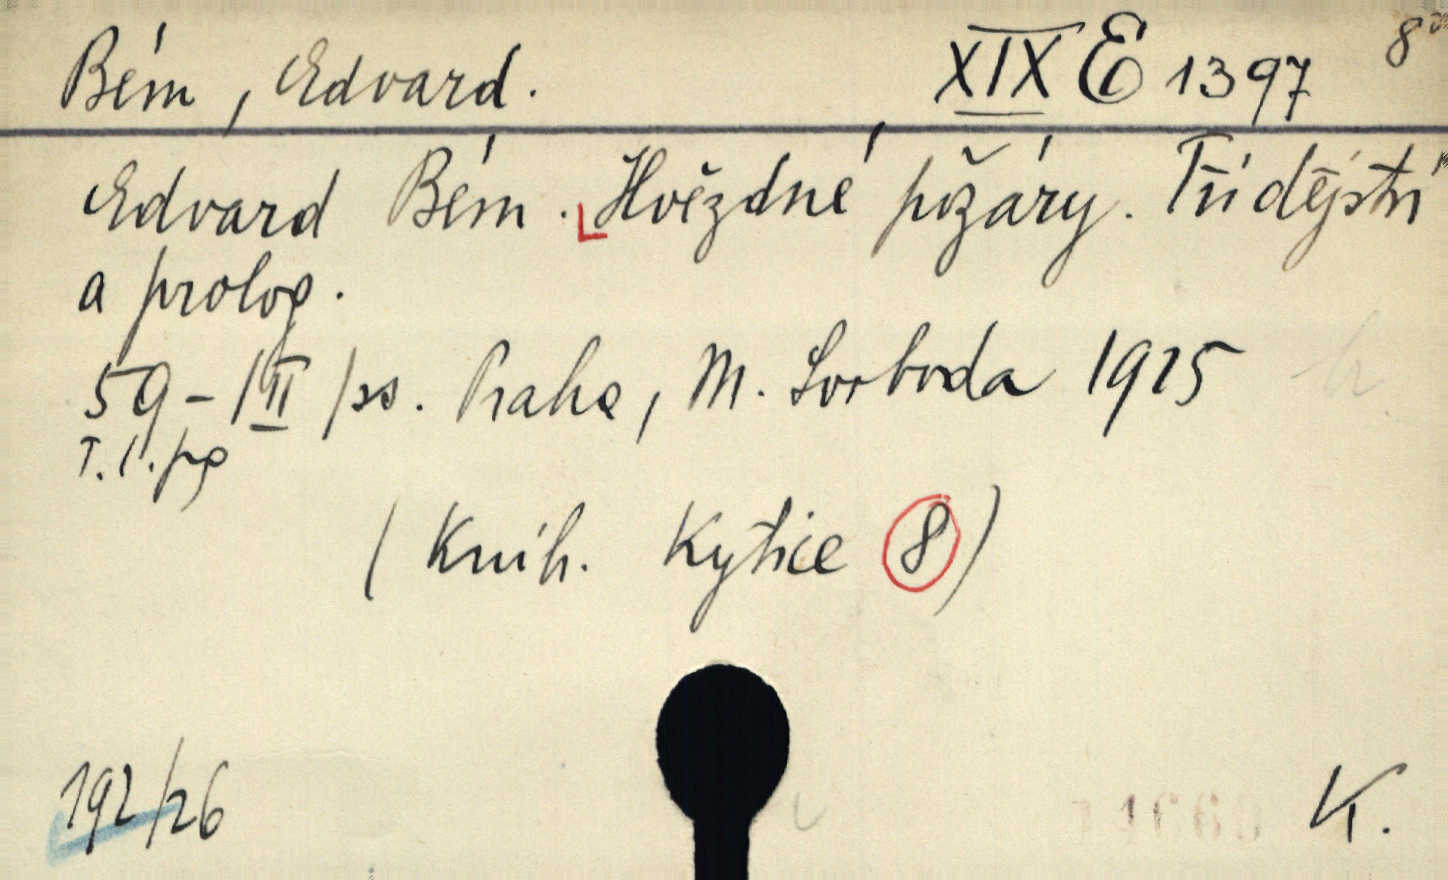 Bém, Edvard. XIX E 1397 8°
Edvard Bém. Hvězdné požáry. Tři dějství
a prolog.
59-/II/ss. Praha, M. Svoboda 1925
T. l. pg
(Knih. Kytice 8)
192/26 K.